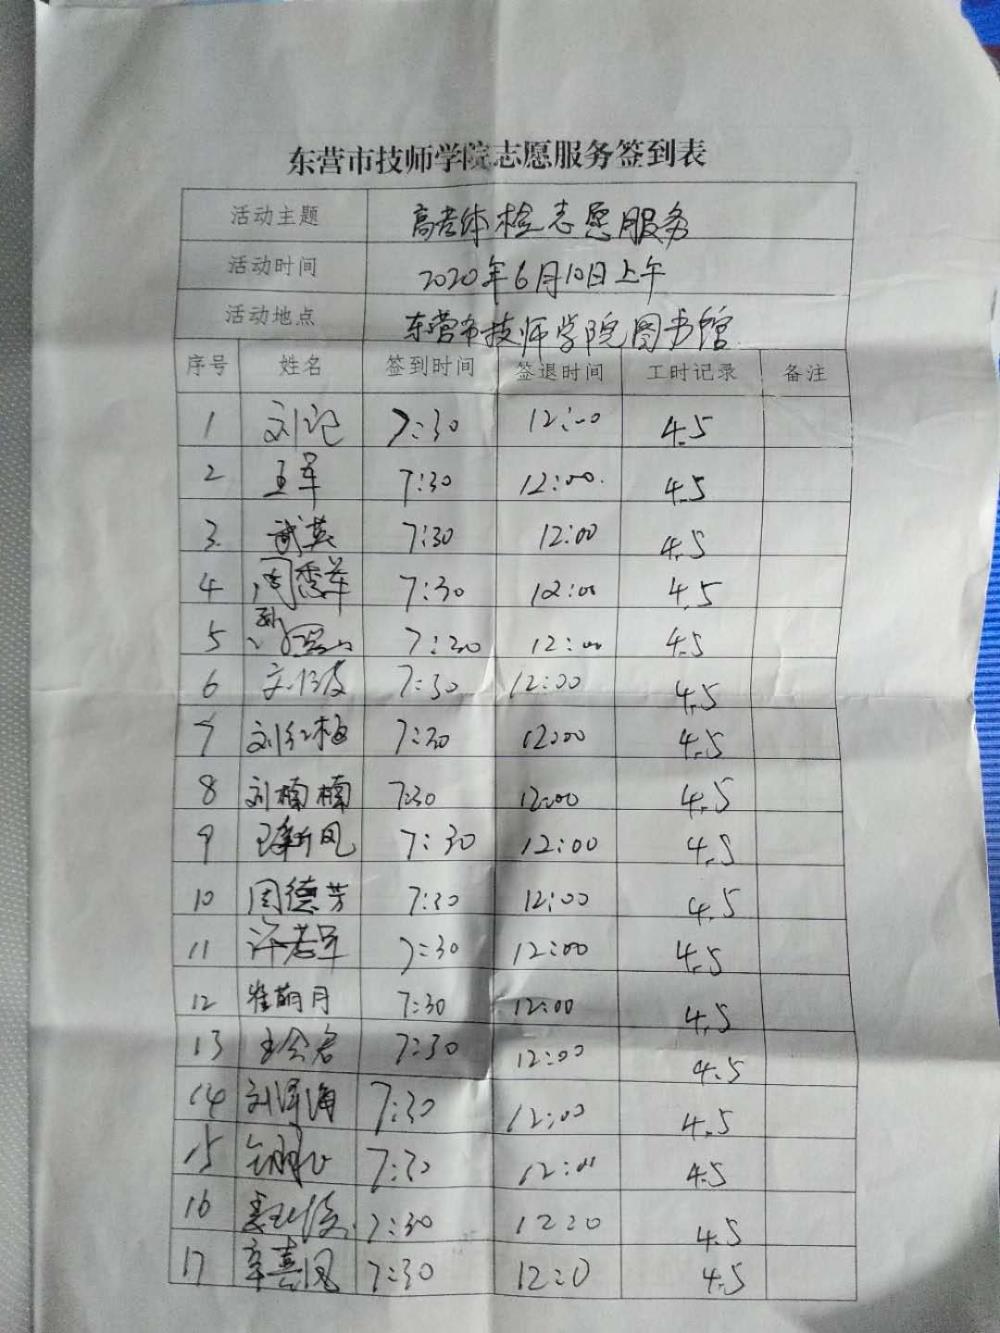 东营市技师学院志愿服务签到表
活动主题 高考体检志愿服务
活动时间 2020年6月10日上午
活动地点 东营市技师学院图书馆
序号 姓名 签到时间 签退时间 工时记录 备注
1 刘 7:30 12:00 4.5
2 王军 7:30 12:00. 4.5
3 武英 7:30 12:00 4.5
4 周秀萍 7:30 12:00 4.5
5 7:30 12:00 4.5
6 7:30 12:00 4.5
7 刘红梅 7:30 12:00 4.5
8 刘楠楠 7:30 12:00 4.5
9 王新凤 7:30 12:00 4.5
10 周德芳 7:30 12:00 4.5
11 许若军 7:30 12:00 4.5
12 崔萌月 7:30 12:00 4.5
13 7:30 12:00 4.5
14 刘军海 7:30 12:00 4.5
15 7:30 12:00 4.5
16 7:30 12:00 4.5
17 辛喜凤 7:30 12:0 4.5